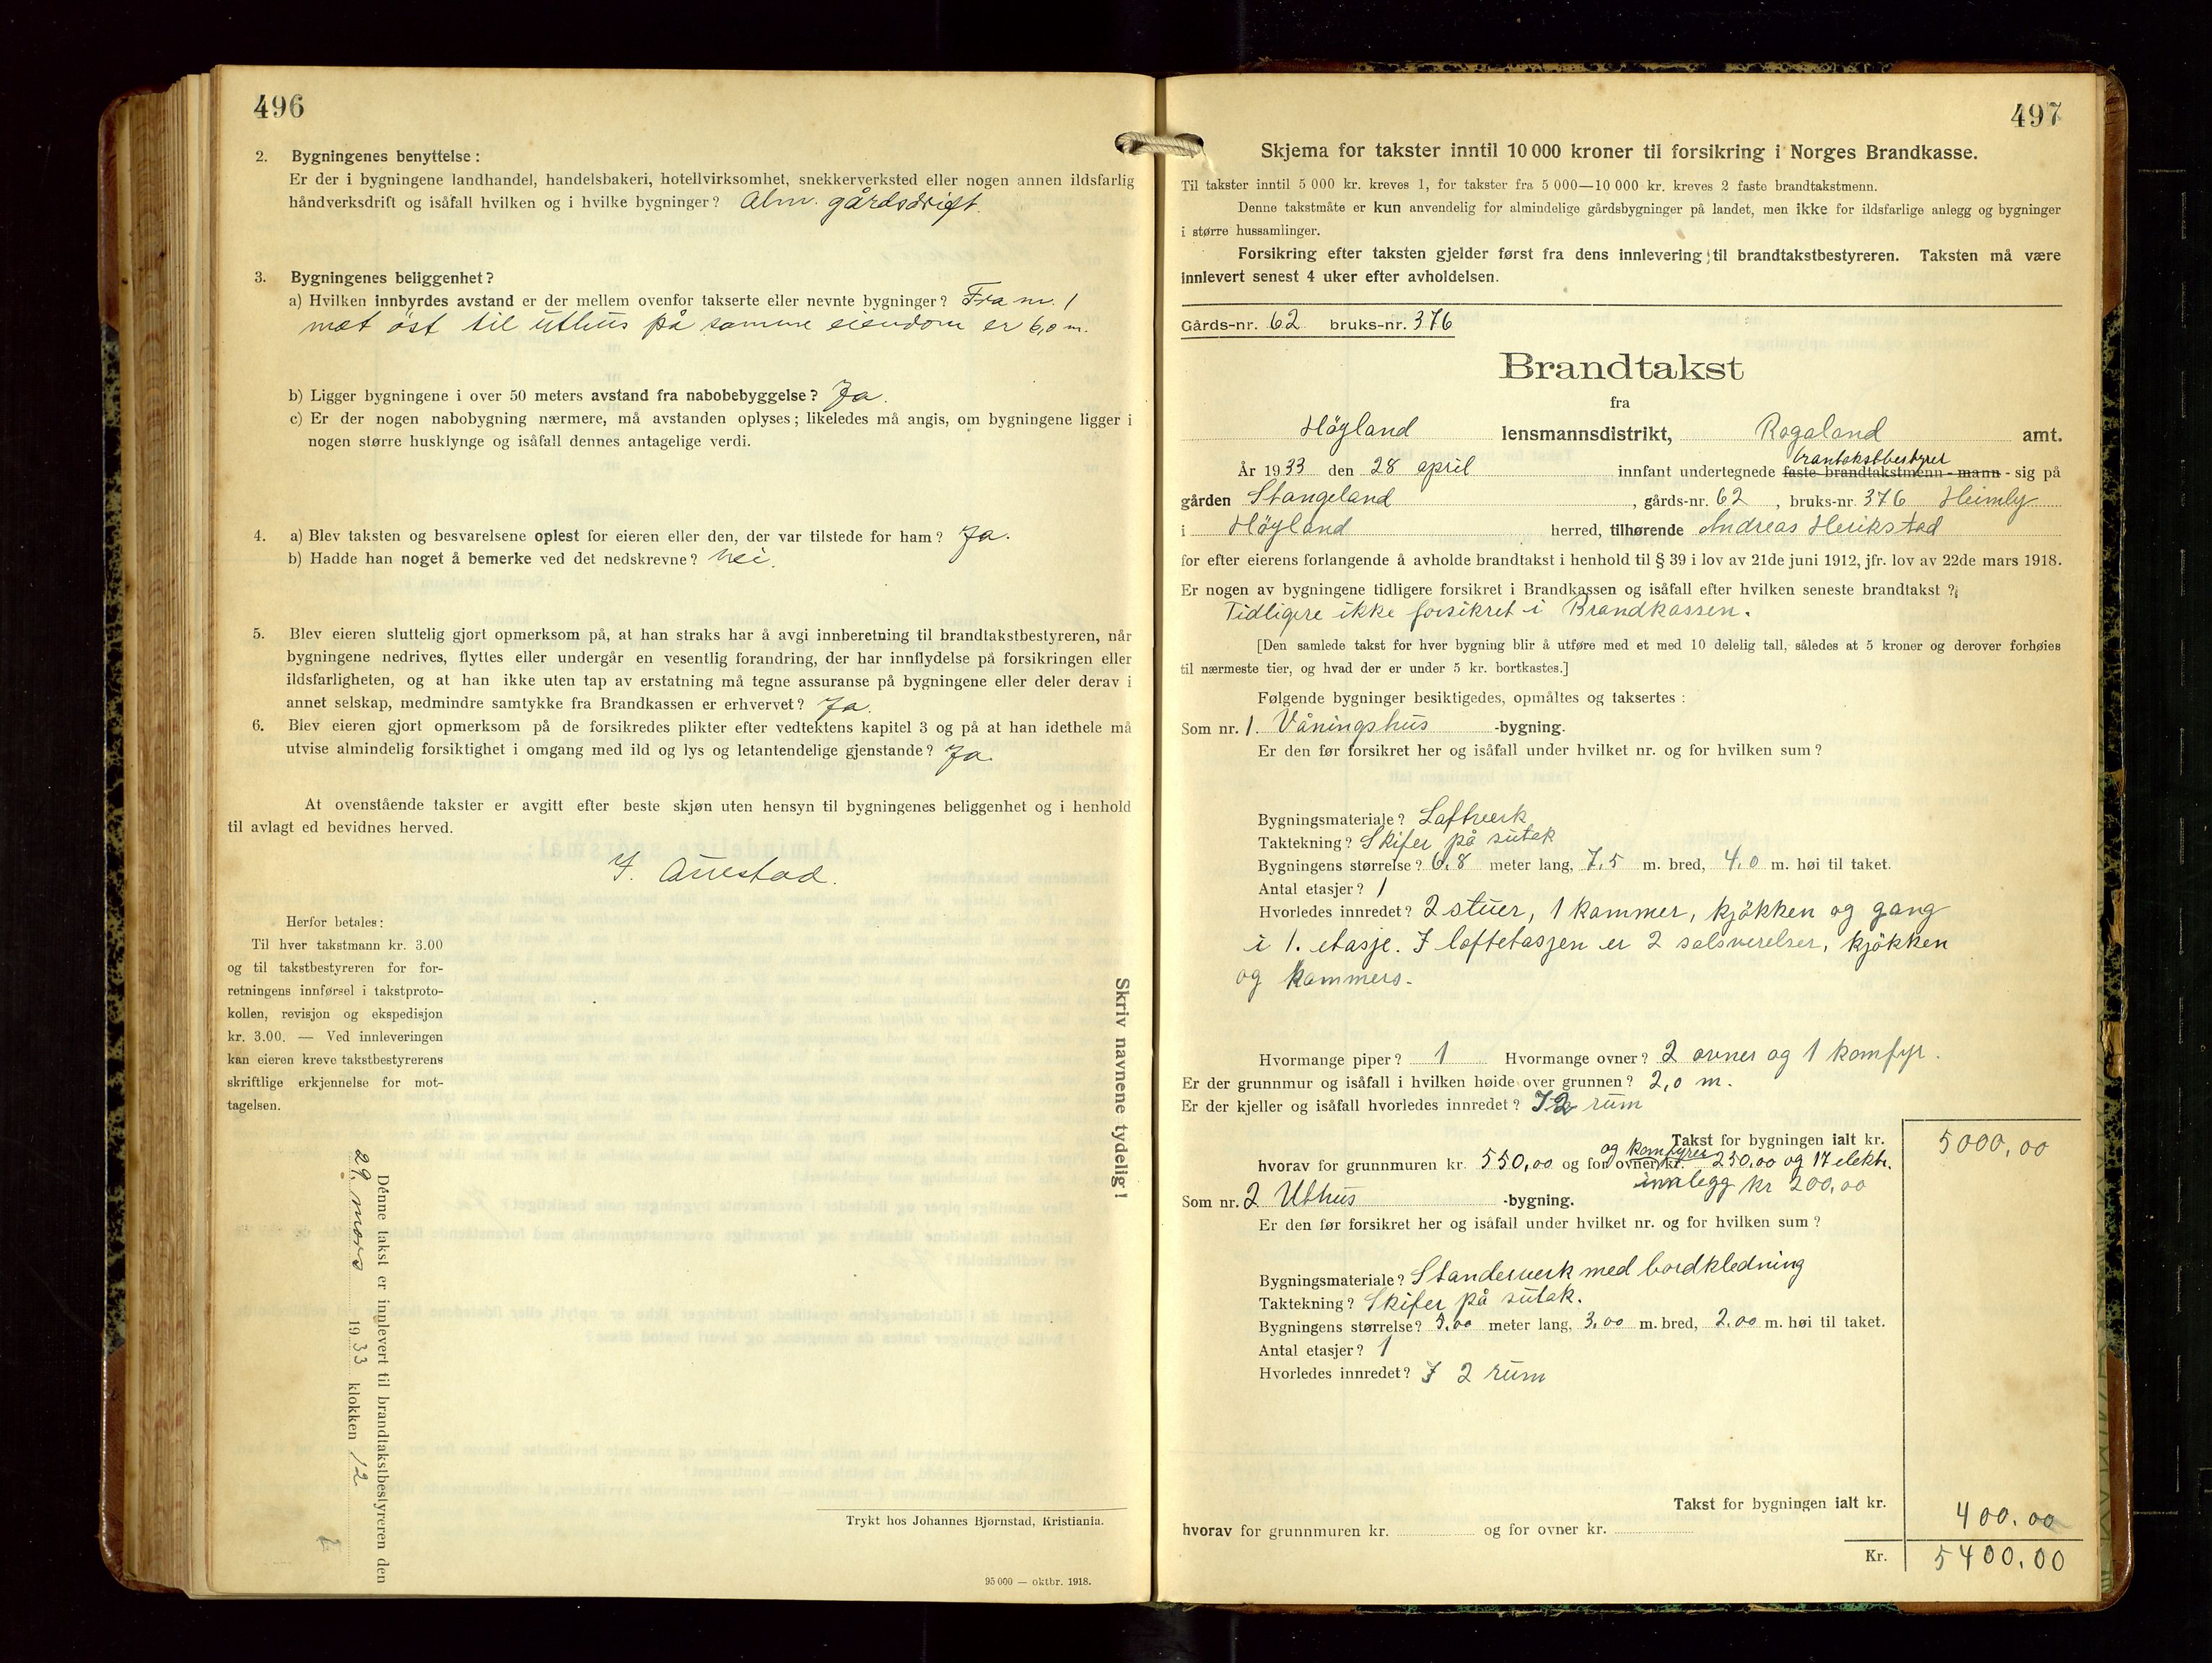 496
2. Bygningenes benyttelse:
Er der i bygningene landhandel, handelsbakeri, hotellvirksomhet, snekkerverksted eller nogen annen ildsfarlig
håndverksdrift og isåfall hvilken og i hvilke bygninger? Alm. gårdsdrift.
3. Bygningenes beliggenhet?
a) Hvilken innbyrdes avstand er der mellem ovenfor takserte eller nevnte bygninger? Fra nr. 1
mot öst til uthus på samme eiendom er 6,0 m.
b) Ligger bygningene i over 50 meters avstand fra nabobebyggelse? Ja.
c) Er der nogen nabobygning nærmere, må avstanden oplyses; likeledes må angis, om bygningene ligger i
nogen større husklynge og isåfall dennes antagelige verdi.
4. a) Blev taksten og besvarelsene oplest for eieren eller den, der var tilstede for ham? Ja.
b) Hadde han noget å bemerke ved det nedskrevne? Nei.
5. Blev eieren sluttelig gjort opmerksom på, at han straks har å avgi innberetning til brandtakstbestyreren, når
bygningene nedrives, flyttes eller undergår en vesentlig forandring, der har innflydelse på forsikringen eller
ildsfarligheten, og at han ikke uten tap av erstatning må tegne assuranse på bygningene eller deler derav i
annet selskap, medmindre samtykke fra Brandkassen er erhvervet? Ja.
6. Blev eieren gjort opmerksom på de forsikredes plikter efter vedtektens kapitel 3 og på at han idethele må
utvise almindelig forsiktighet i omgang med ild og lys og letantendelige gjenstande? Ja.
At ovenstående takster er avgitt efter beste skjøn uten hensyn til bygningenes beliggenhet og i henhold
til avlagt ed bevidnes herved.
J. Auestad.
Herfor betales:
Til hver takstmann kr. 3.00
og til takstbestyreren for for-
retningens innførsel i takstproto-
kollen, revisjon og ekspedisjon
kr. 3.00. — Ved innleveringen
kan eieren kreve takstbestyrerens
skriftlige erkjennelse for mot-
tagelsen.
Skriv navnene tydelig!
Denne takst er innlevert til brandtakstbestyreren den
29 mars 1933 klokken 12
Trykt hos Johannes Bjørnstad, Kristiania.
95 000 — oktbr. 1918.
497
Skjema for takster inntil 10 000 kroner til forsikring i Norges Brandkasse.
Til takster inntil 5 000 kr. kreves 1, for takster fra 5 000—10 000 kr. kreves 2 faste brandtakstmenn.
Denne takstmåte er kun anvendelig for almindelige gårdsbygninger på landet, men ikke for ildsfarlige anlegg og bygninger
i større hussamlinger.
Forsikring efter taksten gjelder først fra dens innlevering til brandtakstbestyreren. Taksten må være
innlevert senest 4 uker efter avholdelsen.
Gårds-nr. 62 bruks-nr. 376
Brandtakst
fra
Höyland lensmannsdistrikt, Rogaland amt.
brantakstbestyrer
År 1933 den 28 april innfant undertegnede faste brandtakstmenn - mann - sig på
gården Stangeland, gårds-nr. 62, bruks-nr. 376 Heimly
i Höyland herred, tilhørende Andreas Herikstad
for efter eierens forlangende å avholde brandtakst i henhold til § 39 i lov av 21de juni 1912, jfr. lov av 22de mars 1918.
Er nogen av bygningene tidligere forsikret i Brandkassen og isåfall efter hvilken seneste brandtakst?
Tidligere ikke forsikret i Brandkassen.
[Den samlede takst for hver bygning blir å utføre med et med 10 delelig tall, således at 5 kroner og derover forhøies
til nærmeste tier, og hvad der er under 5 kr. bortkastes.]
Følgende bygninger besiktigedes, opmåltes og taksertes:
Som nr. 1. Våningshus -bygning.
Er den før forsikret her og isåfall under hvilket nr. og for hvilken sum?
Bygningsmateriale? Laftverk
Taktekning? Skifer på sutak
Bygningens størrelse? 6,8 meter lang, 7,5 m. bred, 4,0 m. høi til taket.
Antal etasjer? 1
Hvorledes innredet? 2 stuer, 1 kammer, kjökken og gang
i 1. etasje. I loftetasjen er 2 salsverelser, kjökken
og kammers.
Hvormange piper? 1 Hvormange ovner? 2 ovner og 1 komfyr.
Er der grunnmur og isåfall i hvilken høide over grunnen? 2,0 m.
Er der kjeller og isåfall hvorledes innredet? I 2 rum
Takst for bygningen ialt kr. 5000,00
og komfyrer
hvorav for grunnmuren kr. 550,00 og for ovner kr. 250,00 og 17 elektr.
innlegg kr 200,00
Som nr. 2 Uthus -bygning.
Er den før forsikret her og isåfall under hvilket nr. og for hvilken sum?
Bygningsmateriale? Standerverk med bordkledning
Taktekning? Skifer på sutak.
Bygningens størrelse? 5,00 meter lang, 3,00 m. bred, 2,00 m. høi til taket.
Antal etasjer? 1
Hvorledes innredet? I 2 rum
Takst for bygningen ialt kr. 400,00
hvorav for grunnmuren kr. og for ovner kr.
Kr. 5400,00